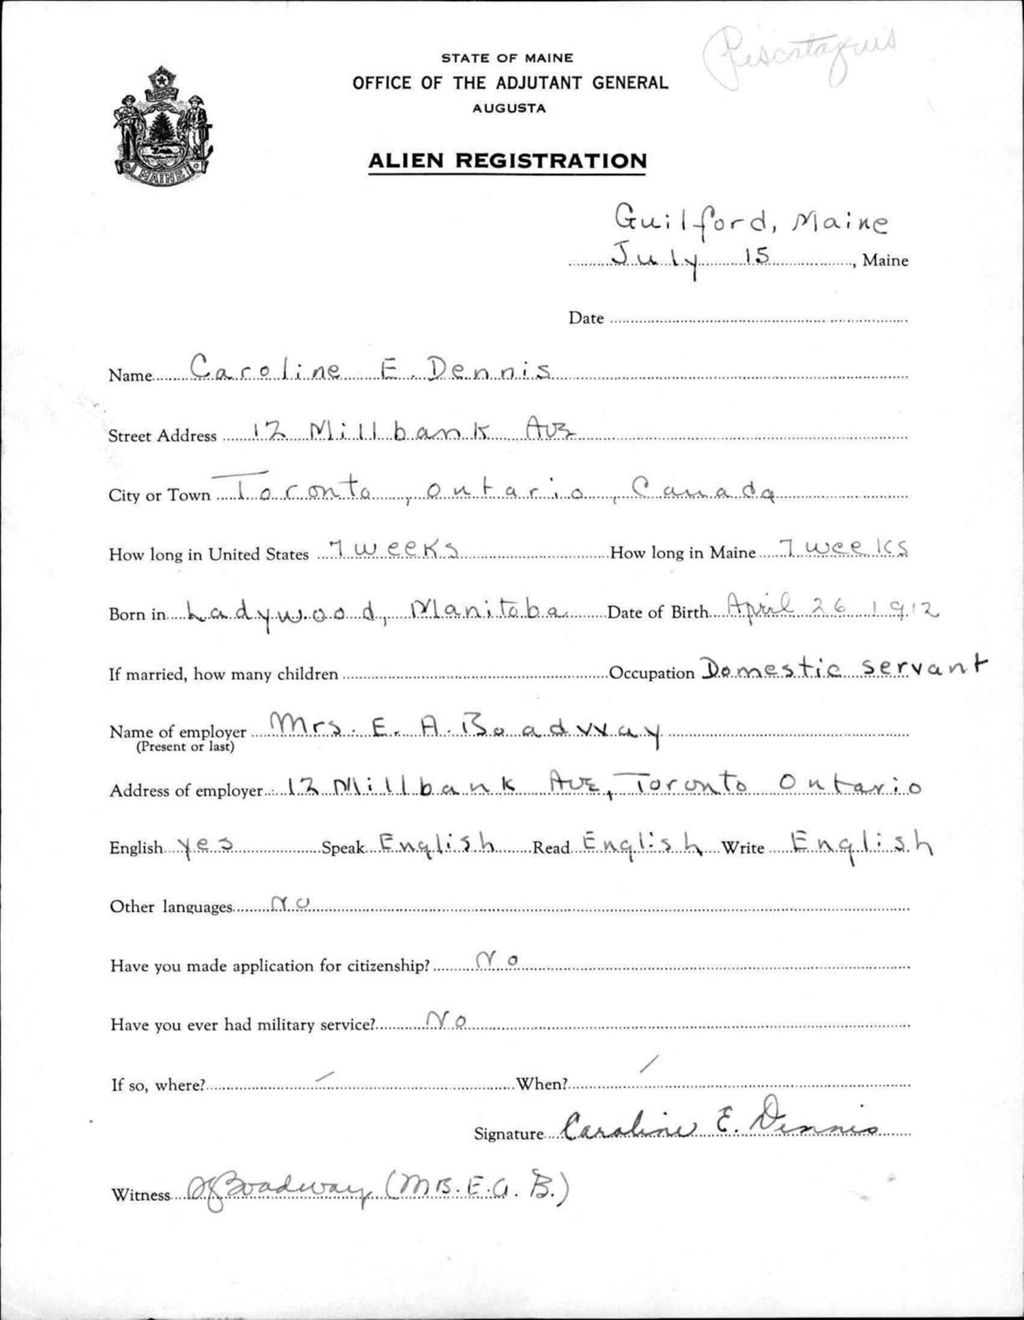 Piscataquis
STATE OF MAINE
OFFICE OF THE ADJUTANT GENERAL
AUGUSTA
MAINE
ALIEN REGISTRATION
Guilford, Maine
July 15, Maine
Date
Name Caroline E. Dennis
Street Address 12 Millbank Ave
City or Town Toronto, Ontario, Canada
How long in United States 7 weeks How long in Maine 7 weeks
Born in Ladywood, Manitoba Date of Birth April 26 1912
If married, how many children Occupation Domestic servant
Name of employer Mrs. E. A. Boadway
(Present or last)
Address of employer 12 Millbank Ave, Toronto Ontario
English yes Speak English Read English Write English
Other languages No
Have you made application for citizenship? No
Have you ever had military service? No
If so, where? / When? /
Signature Caroline E. Dennis
Witness Boadway (M B. E. A. B.)